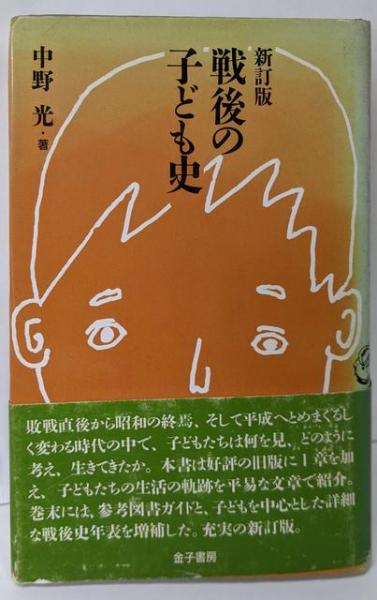 新訂版
戦後の
子ども史
中野 光・著
敗戦直後から昭和の終焉、そして平成へとめまぐるし
く変わる時代の中で、子どもたちは何を見、どのように
考え、生きてきたか。本書は好評の旧版に1章を加
え、子どもたちの生活の軌跡を平易な文章で紹介。
巻末には、参考図書ガイドと、子どもを中心とした詳細
な戦後史年表を増補した。充実の新訂版。
金子書房